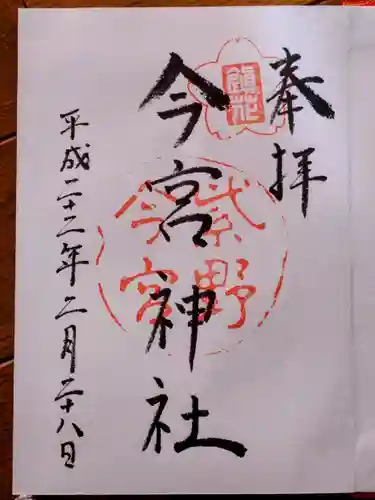 奉拝
鎮花
今宮神社
紫野
今宮
平成二十二年二月二十八日